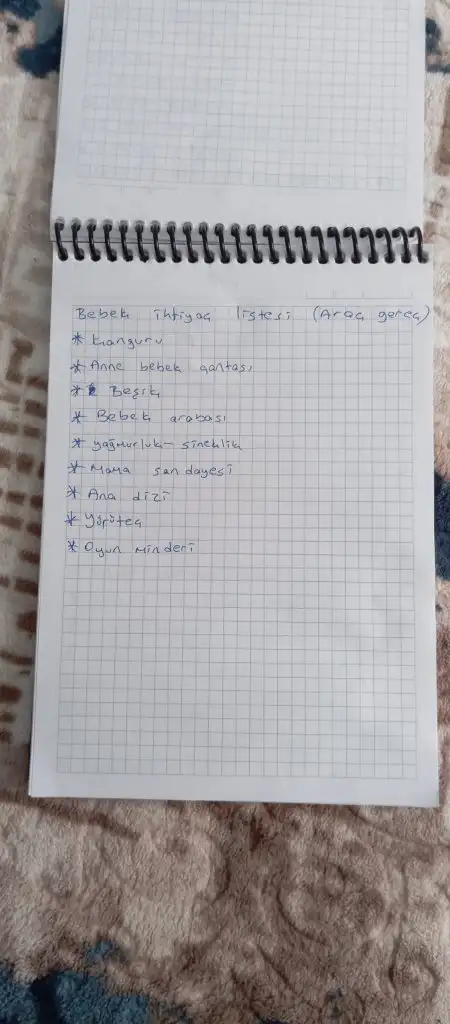 Bebek ihtiyaç listesi (Araç gereç)
* Kanguru
* Anne bebek çantası
* Beşik
* Bebek arabası
* yağmurluk - sineklik
* Mama sandayesi
* Ana dizi
* Yürüteç
* Oyun minderi